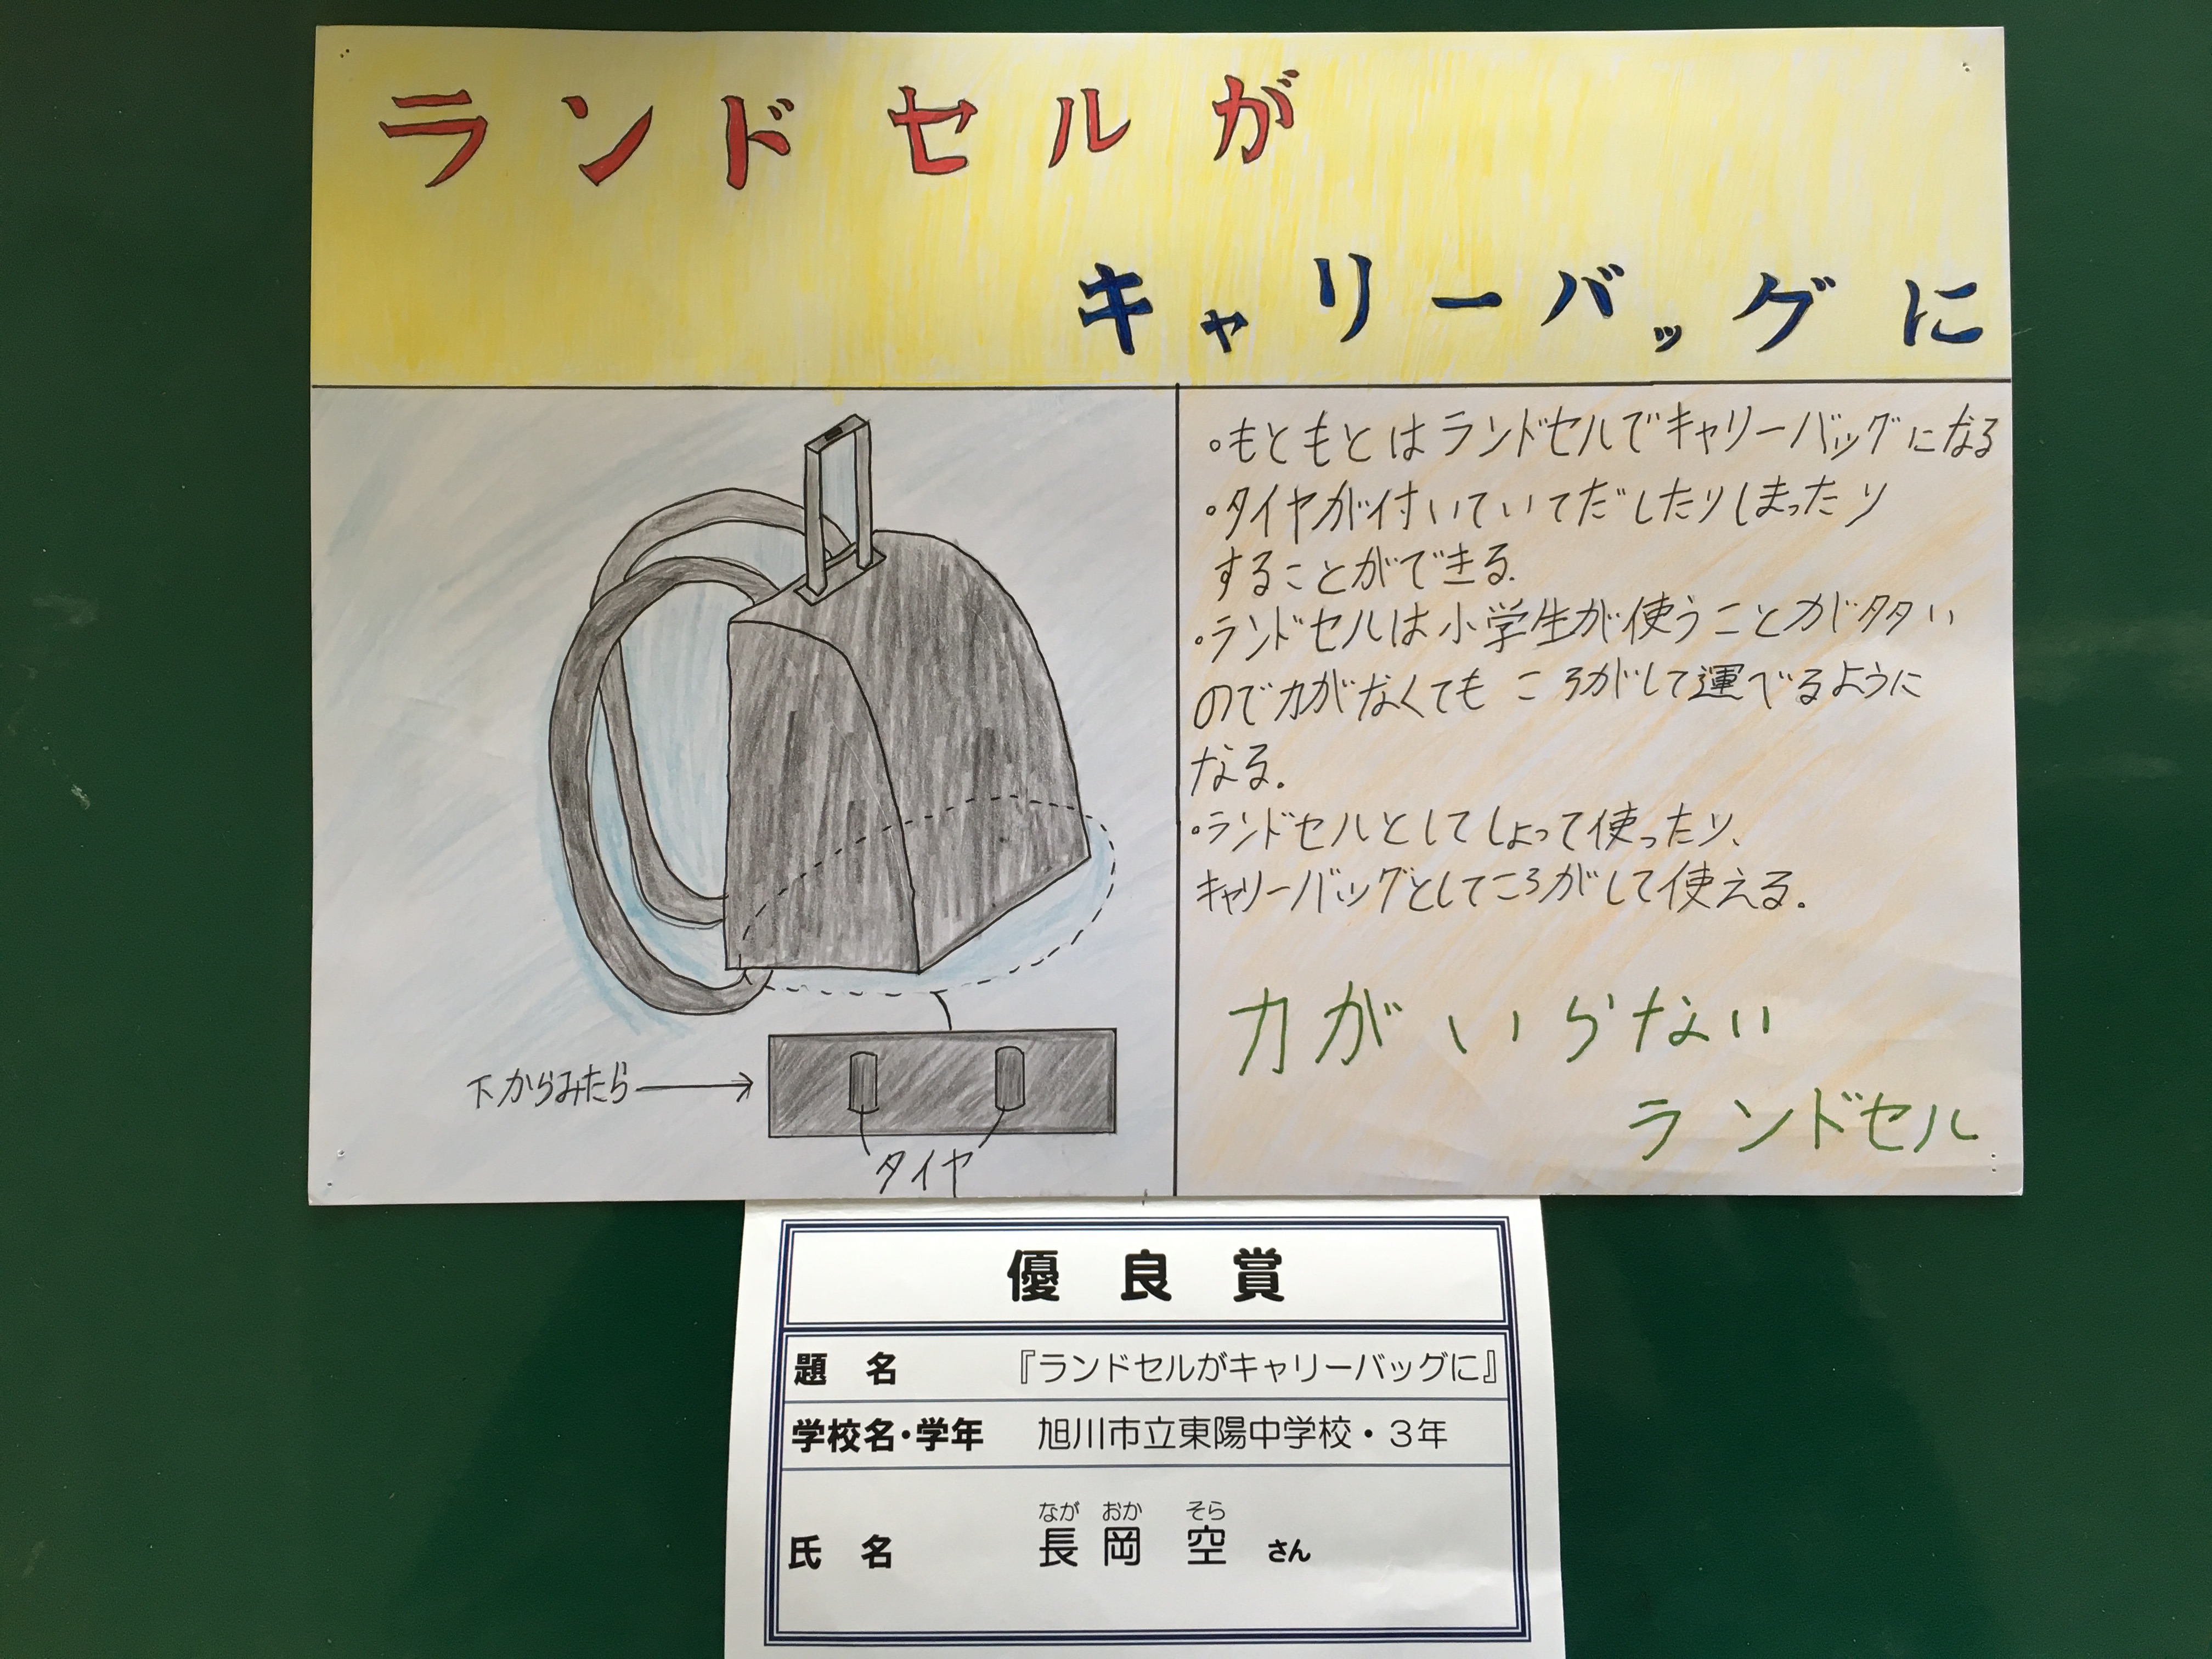 ランドセルが
キャリーバッグに
。もともとはランドセルでキャリーバッグになる
。タイヤが付いていてだしたりしまったり
することができる.
・ランドセルは小学生が使うことが多い
ので力がなくてもころがして運べるように
なる.
・ランドセルとしてしょって使ったり、
キャリーバッグとしてころがして使える.
力がいらない
ランドセル
下からみたら
タイヤ
優良賞
題名 『ランドセルがキャリーバッグに』
学校名・学年 旭川市立東陽中学校・3年
なが おか そら
氏名 長岡 空 さん